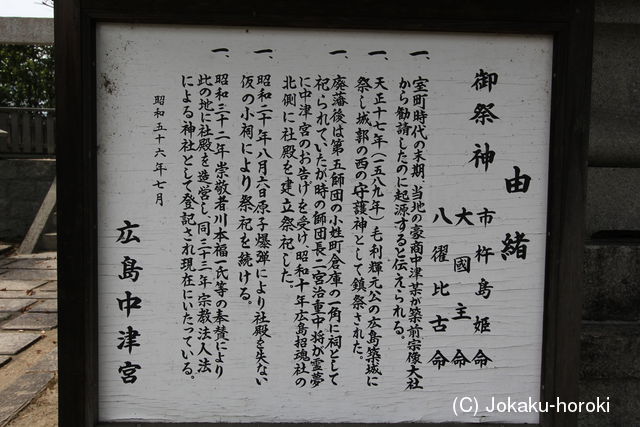 由緒
御祭神
市杵島姫命
大國主命
八擢比古命
一、室町時代の末期、当地の豪商中津某が築前宗像大社
から勧請したのに起源すると伝えられる。
一、天正十七年(一五八九年)毛利輝元公の広島築城に
祭し城郭の西の守護神として鎮祭された。
一、廃藩後は第五師団の小姓町倉庫の一角に祠として
祀られていたが時の師団長二宮治重中将が霊夢
に中津宮のお告げを受け、昭和十年広島招魂社の
北側に社殿を建立祭祀した。
一、昭和二十年八月六日原子爆弾により社殿を失ない
仮の小祠により祭祀を続ける。
一、昭和三十二年崇敬者川本福一氏等の奉賛により
此の地に社殿を造営し、同三十三年宗教法人法
による神社として登記され現在にいたっている。
昭和五十六年七月
広島中津宮
(C) Jokaku-horoki